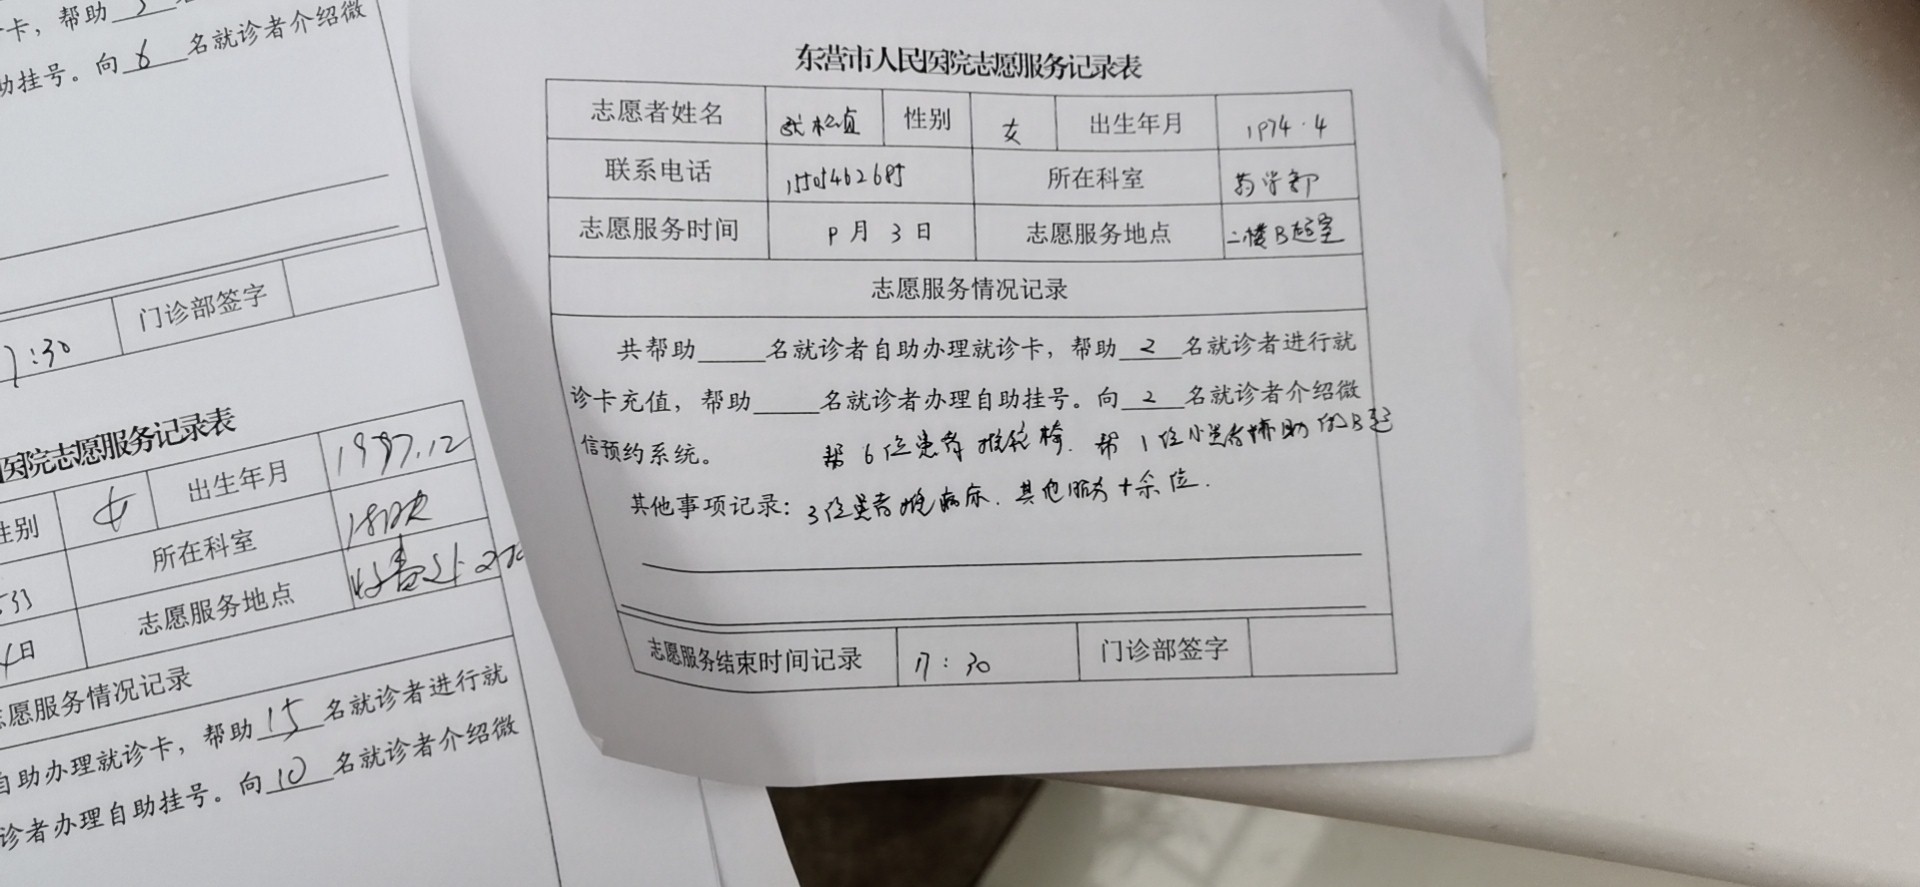 卡，帮助 3
助挂号。向 6 名就诊者介绍微
7:30 门诊部签字
医院志愿服务记录表
性别 女 出生年月 1997.12
533 所在科室
4日 志愿服务地点 收费处
志愿服务情况记录
自助办理就诊卡，帮助 15 名就诊者进行就
诊者办理自助挂号。向 10 名就诊者介绍微
东营市人民医院志愿服务记录表
志愿者姓名 性别 女 出生年月 1974.4
联系电话 1505462685 所在科室 药学部
志愿服务时间 9月3日 志愿服务地点 二楼B超室
志愿服务情况记录
共帮助____名就诊者自助办理就诊卡，帮助 2 名就诊者进行就
诊卡充值，帮助____名就诊者办理自助挂号。向 2 名就诊者介绍微
信预约系统。 帮6位患者推轮椅.帮1位小患者辅助做B超
其他事项记录：3位患者推病床.其他服务十余位.
志愿服务结束时间记录 17:30 门诊部签字